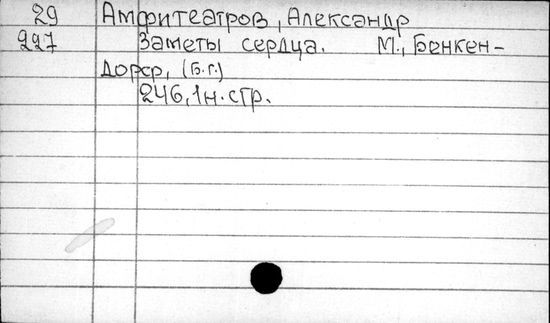 29 Амфитеатров, Александр
227 Заметы сердца. М., Бенкен-
дорф, (Б.г.)
246, 1н. стр.